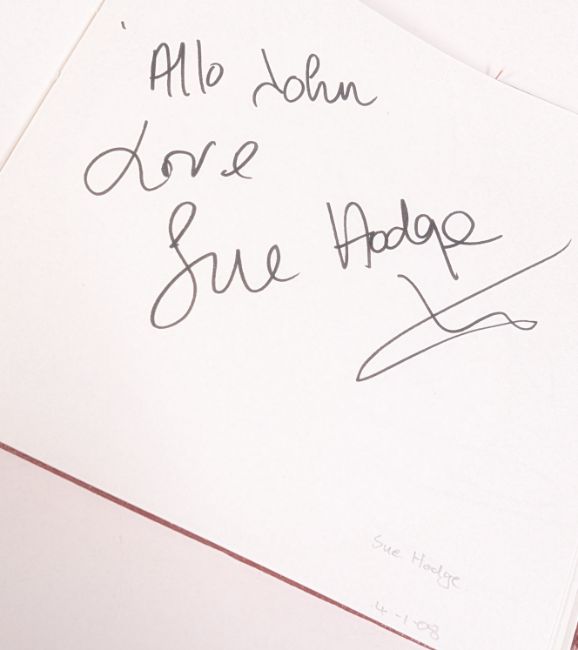 Allo John
Love
Sue Hodge
x
Sue Hodge
4-1-08